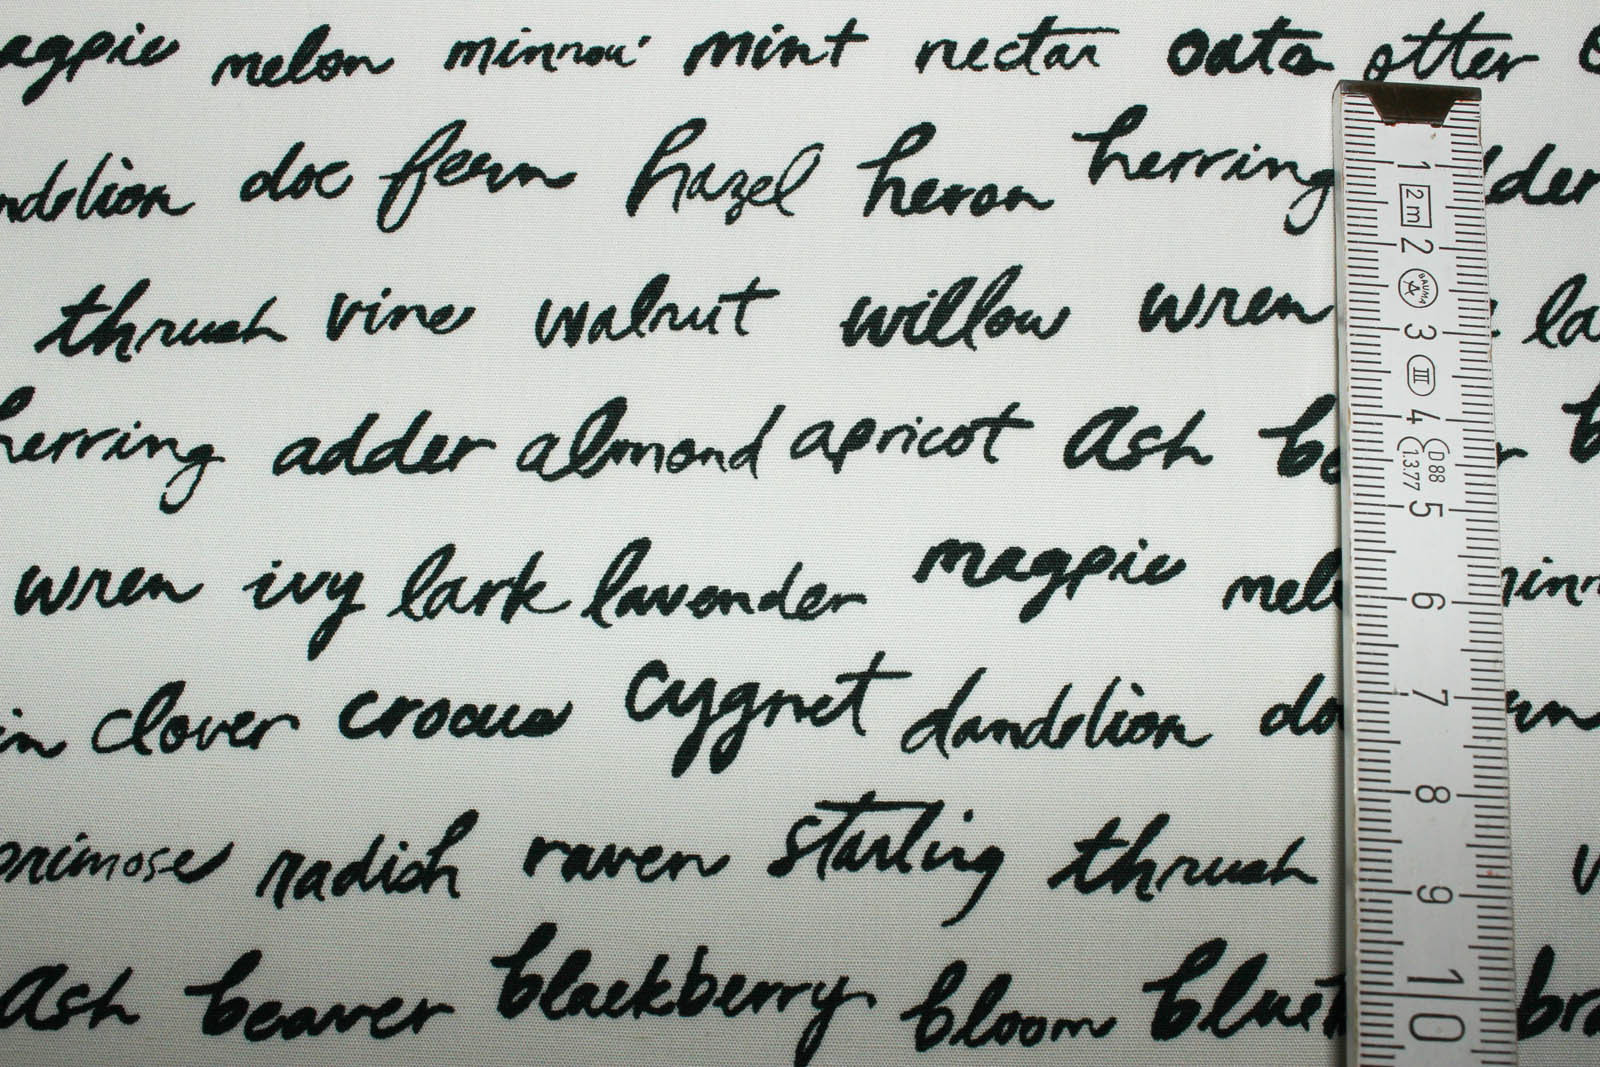 agpie melon minnow mint nectar oats otter
ndelion doe fern hazel heron herring dder
thrush vine walnut willow wren la
herring adder almond apricot ash be r b
wren ivy lark lavender magpie mel inn
in clover crocus cygnet dandelion do rn
primose radish raven starling thrush v
ash beaver blackberry bloom bluet bra
1
2m
2
BAUMA
3
III
4
D88
13.77
5
6
7
8
9
10